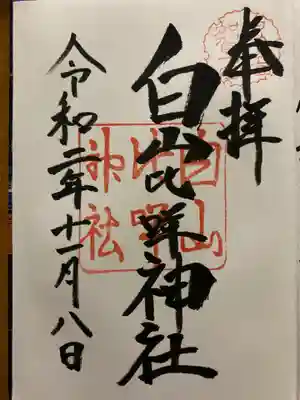 奉拝
白山比咩神社
令和二年十一月八日
白山
比咩
神社